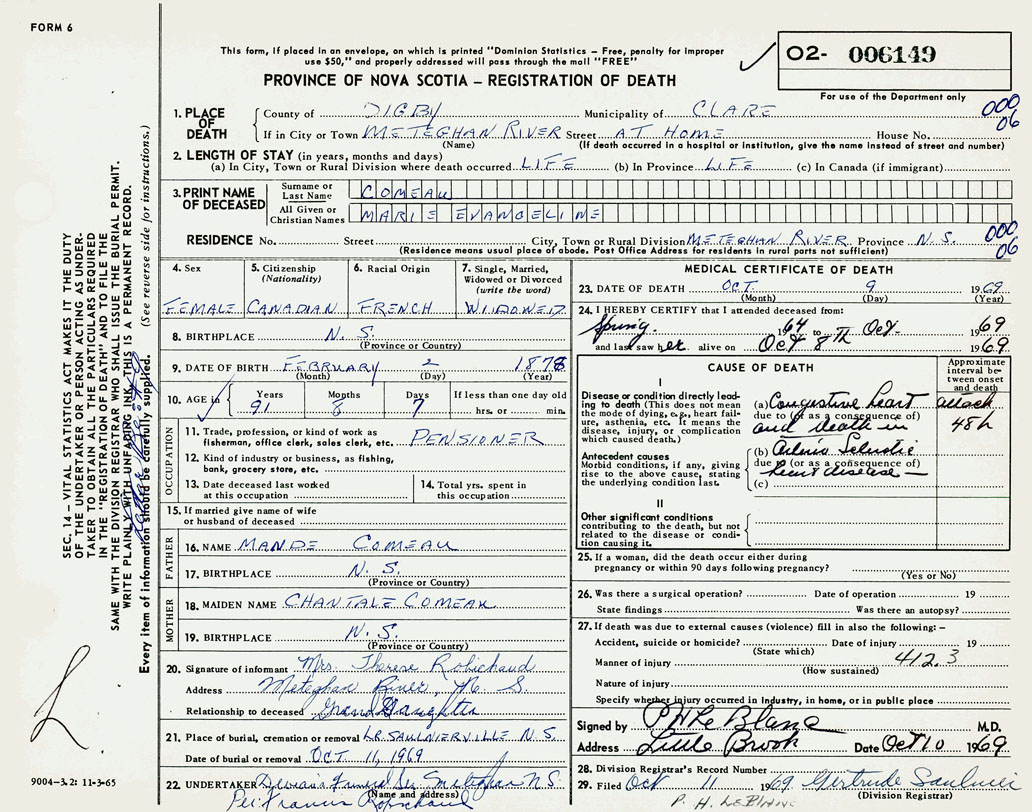 FORM 6
This form, if placed in an envelope, on which is printed "Dominion Statistics – Free, penalty for improper
use $50," and properly addressed will pass through the mail "FREE"
PROVINCE OF NOVA SCOTIA – REGISTRATION OF DEATH
O2- 006149
For use of the Department only
1. PLACE OF DEATH
County of DIGBY Municipality of CLARE 000
If in City or Town METEGHAN RIVER Street AT HOME House No. 06
(Name) (If death occurred in a hospital or institution, give the name instead of street and number)
2. LENGTH OF STAY (in years, months and days)
(a) In City, Town or Rural Division where death occurred LIFE (b) In Province LIFE (c) In Canada (if immigrant)
3. PRINT NAME OF DECEASED
Surname or Last Name COMEAU
All Given or Christian Names MARIE EVANGELINE
RESIDENCE No. Street City, Town or Rural Division METEGHAN RIVER Province N. S. 000
(Residence means usual place of abode. Post Office Address for residents in rural parts not sufficient) 06
4. Sex 5. Citizenship (Nationality) 6. Racial Origin 7. Single, Married, Widowed or Divorced (write the word)
FEMALE CANADIAN FRENCH WIDOWED
8. BIRTHPLACE N. S.
(Province or Country)
9. DATE OF BIRTH FEBRUARY 2 1878
(Month) (Day) (Year)
10. AGE in Years Months Days If less than one day old
91 8 7 hrs. or min.
OCCUPATION
11. Trade, profession, or kind of work as
fisherman, office clerk, sales clerk, etc. PENSIONER
12. Kind of industry or business, as fishing,
bank, grocery store, etc.
13. Date deceased last worked
at this occupation
14. Total yrs. spent in
this occupation
15. If married give name of wife
or husband of deceased
FATHER
16. NAME MANDE COMEAU
17. BIRTHPLACE N. S.
(Province or Country)
MOTHER
18. MAIDEN NAME CHANTALE COMEAU
19. BIRTHPLACE N. S.
(Province or Country)
20. Signature of informant Mrs. Therese Robichaud
Address Meteghan River, N. S.
Relationship to deceased Grand Daughter
21. Place of burial, cremation or removal SAULNIERVILLE N. S.
Date of burial or removal OCT. 11, 1969
22. UNDERTAKER Meteghan N S.
(Name and address)
Per: Francis
MEDICAL CERTIFICATE OF DEATH
23. DATE OF DEATH OCT. 9 1969
(Month) (Day) (Year)
24. I HEREBY CERTIFY that I attended deceased from:
Spring 1964 to Oct. 1969
and last saw her alive on Oct 8th 1969.
CAUSE OF DEATH
Approximate interval between onset and death
I
Disease or condition directly leading to death (This does not mean the mode of dying, e.g., heart failure, asthenia, etc. It means the disease, injury, or complication which caused death.)
(a) Congestive heart attack
due to (or as a consequence of)
and death in 48h
Antecedent causes
Morbid conditions, if any, giving rise to the above cause, stating the underlying condition last.
(b)
due to (or as a consequence of)
heart disease
(c)
II
Other significant conditions
contributing to the death, but not
related to the disease or condition causing it.
25. If a woman, did the death occur either during
pregnancy or within 90 days following pregnancy?
(Yes or No)
26. Was there a surgical operation? Date of operation 19
State findings Was there an autopsy?
27. If death was due to external causes (violence) fill in also the following: –
Accident, suicide or homicide? Date of injury 19
(State which) 412.3
Manner of injury
(How sustained)
Nature of injury
Specify whether injury occurred in Industry, in home, or in public place
Signed by P H Le Blanc M.D.
Address Little Brook Date Oct 10 1969
28. Division Registrar's Record Number
29. Filed Oct 11 1969 Gertrude Saulnier
(Division Registrar)
P. H. LeBlanc
SEC. 14 – VITAL STATISTICS ACT MAKES IT THE DUTY
OF THE UNDERTAKER OR PERSON ACTING AS UNDER-
TAKER TO OBTAIN ALL THE PARTICULARS REQUIRED
IN THE "REGISTRATION OF DEATH" AND TO FILE THE
SAME WITH THE DIVISION REGISTRAR WHO SHALL ISSUE THE BURIAL PERMIT.
WRITE PLAINLY WITH UNFADING INK, THIS IS A PERMANENT RECORD.
Every item of information should be carefully supplied. (See reverse side for instructions.)
9004–3.2: 11-3-65